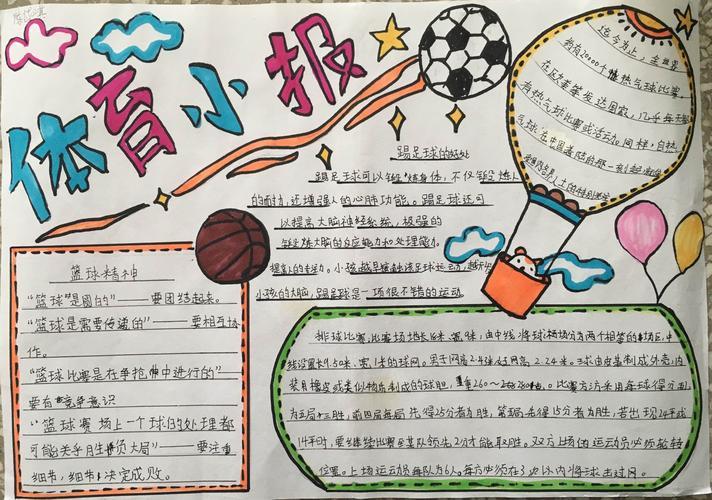 体育小报
踢足球的好处
踢足球可以锻炼身体，不仅锻炼人
的耐力，还增强人的心肺功能。踢足球还可
以提高大脑神经系统，极强的
锻炼大脑的反应能力和处理能力
提高人的
小孩越早接触该足球运动，越开发
小孩的大脑，踢足球是一项很不错的运动
迄今为止，全世界
约有20000个热气球比赛，
在欧美等发达国家，几乎每天都
有热气球比赛或活动。同样，自热
气球在中国着陆的那一刻起
篮球精神
"篮球"是圆的"——要团结起来。
"篮球是需要传递的"——要相互协
作。
"篮球比赛是在争抢中进行的"——
要有竞争意识
"篮球赛场上一个球的处理都
可能关乎胜负大局"——要注重
细节，细节决定成败。
排球比赛，比赛场地长18米，宽9米，由中线将球场分为两个相等的场区，中
线设置长9.50米、宽1米的球网。男子网高2.43米，女网高2.24米。球由皮革制成外壳，内
装用橡皮或类似物质制成的球胆，重260～280克。比赛方法采用每球得分制，
为五局三胜，前四局每局先得25分者为胜，第五局先得15分者为胜，若出现24平或
14平时，要继续比赛至某队领先2分才能取胜。双方上场的运动员必须轮转
位置。上场运动员每队为6人，每方必须在3次以内将球击过网。